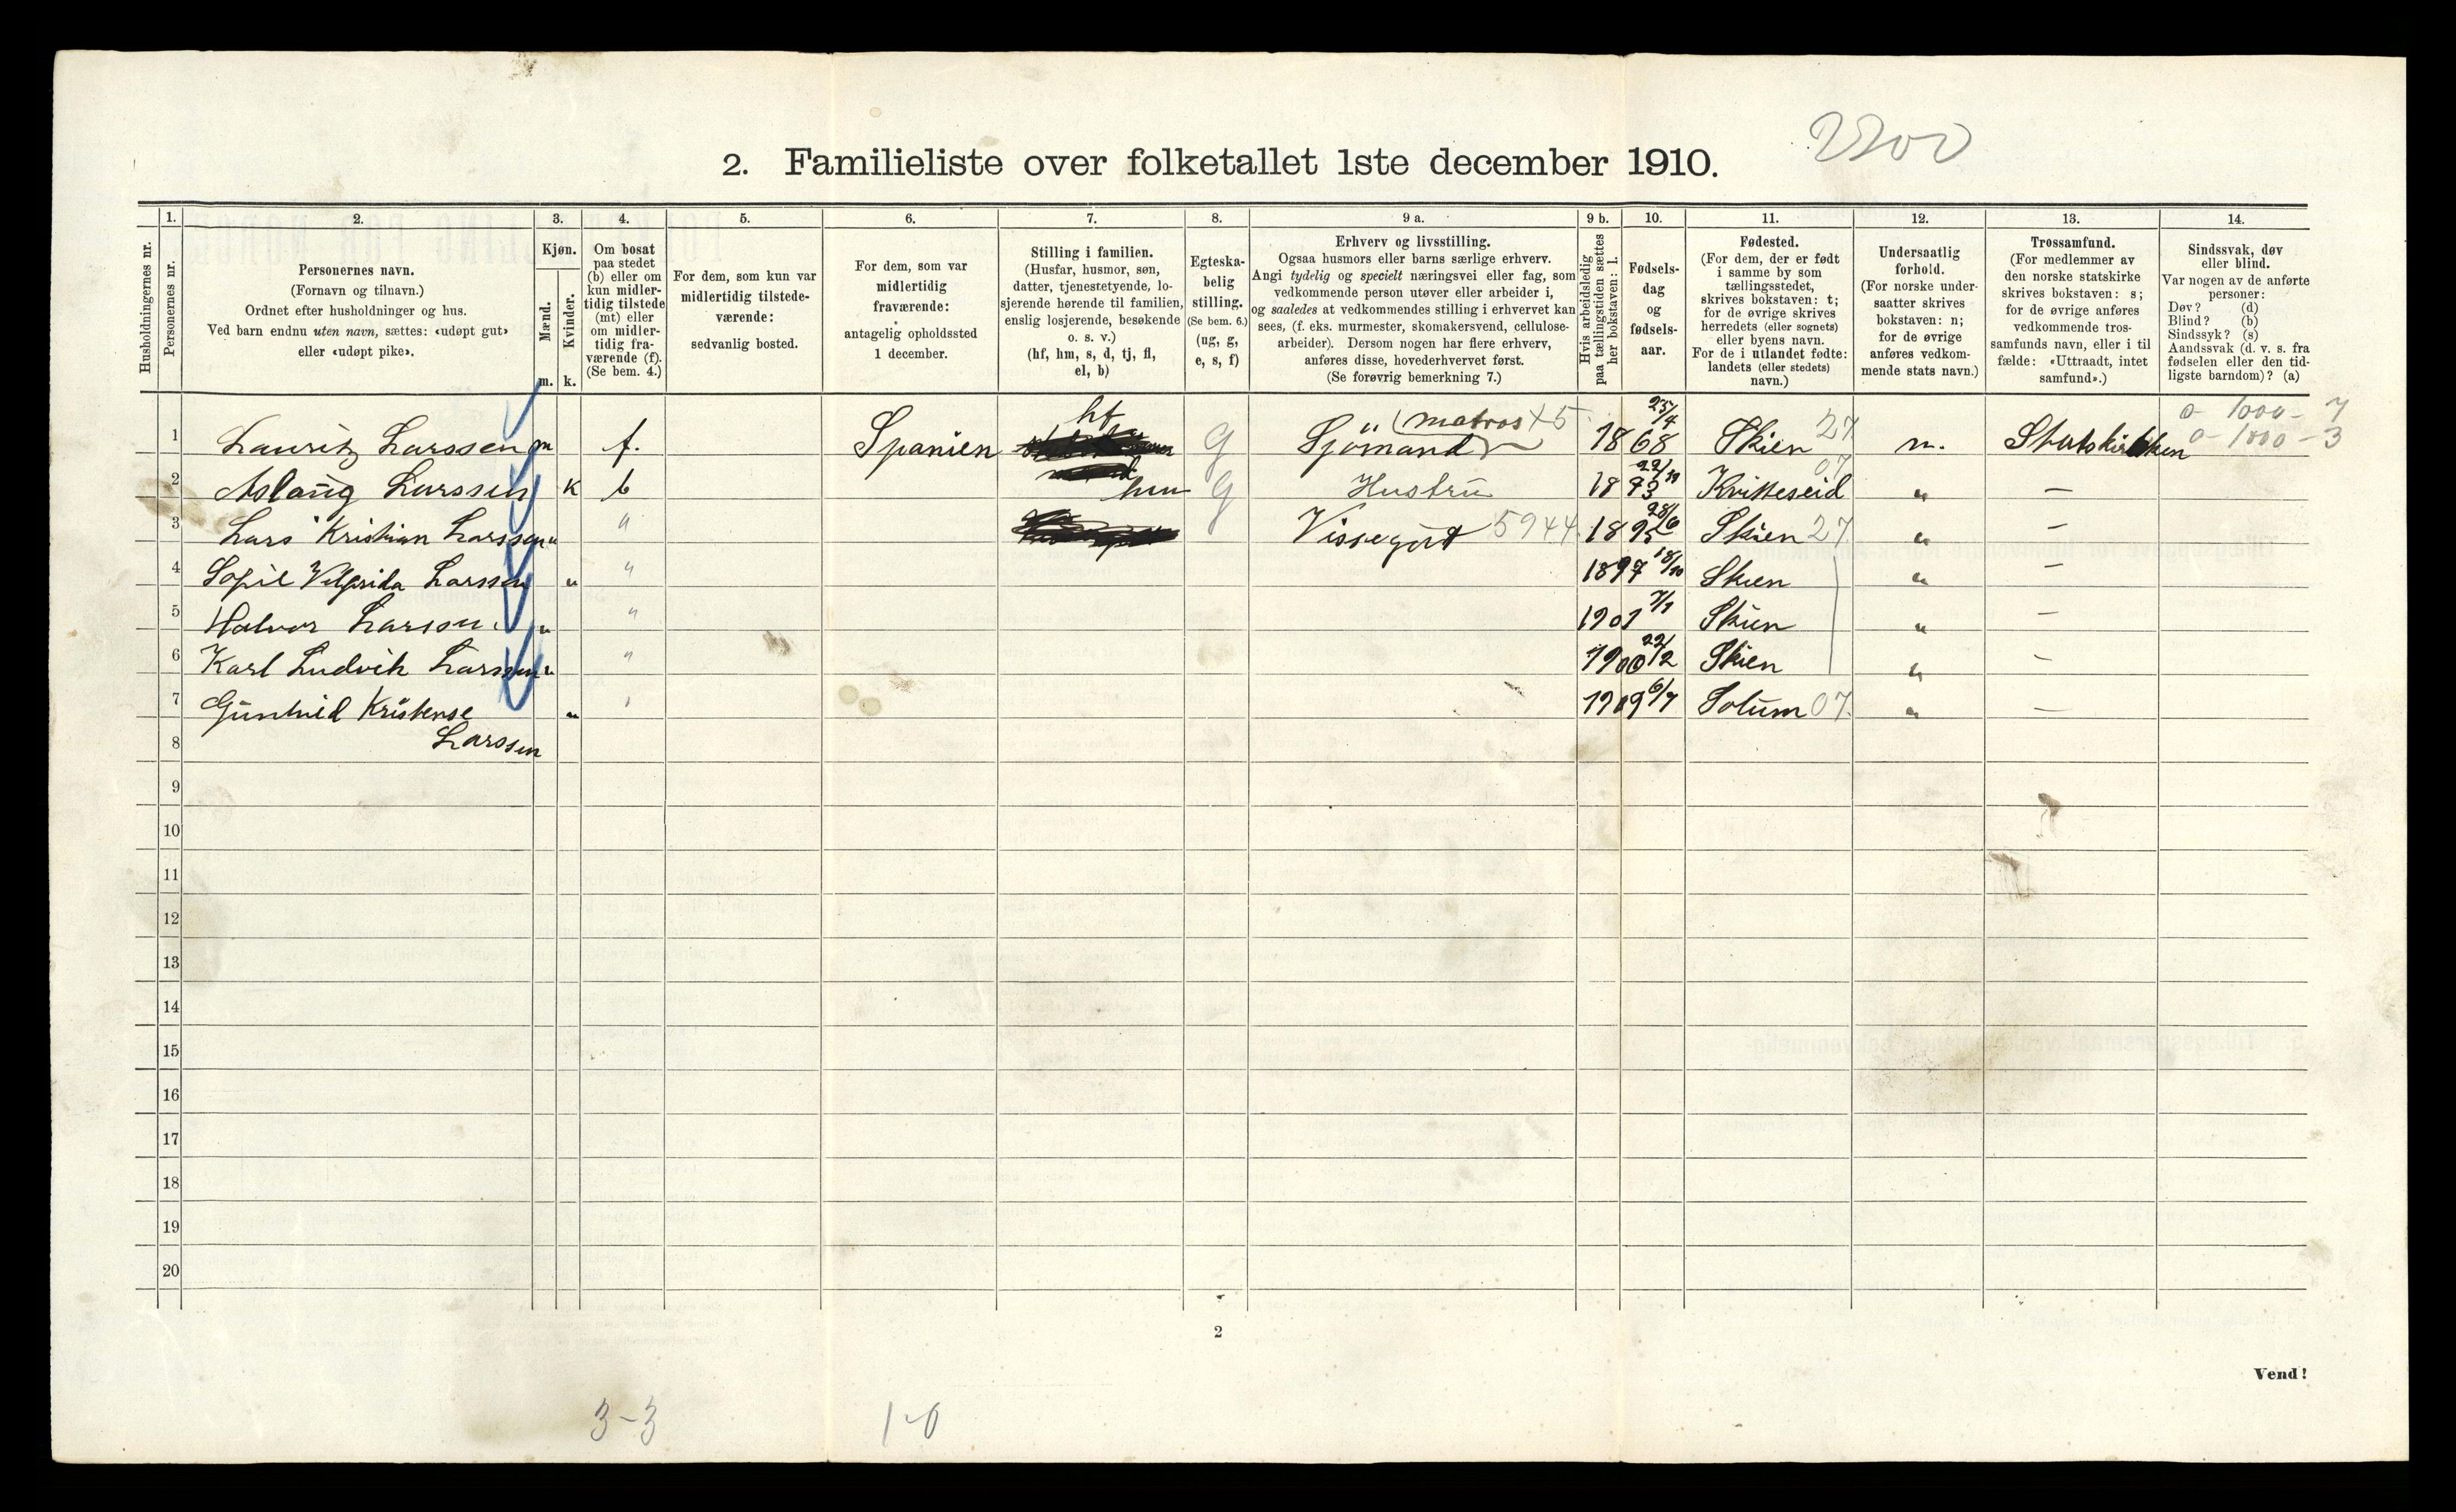 2200
2. Familieliste over folketallet 1ste december 1910.
Husholdningernes nr.
1. Personernes nr.
2. Personernes navn.
(Fornavn og tilnavn.)
Ordnet efter husholdninger og hus.
Ved barn endnu uten navn, sættes: «udøpt gut»
eller «udøpt pike».
3. Kjøn.
Mænd. m.
Kvinder. k.
4. Om bosat
paa stedet
(b) eller om
kun midler-
tidig tilstede
(mt) eller
om midler-
tidig fra-
værende (f).
(Se bem. 4.)
5. For dem, som kun var
midlertidig tilstede-
værende:
sedvanlig bosted.
6. For dem, som var
midlertidig
fraværende:
antagelig opholdssted
1 december.
7. Stilling i familien.
(Husfar, husmor, søn,
datter, tjenestetyende, lo-
sjerende hørende til familien,
enslig losjerende, besøkende
o. s. v.)
(hf, hm, s, d, tj, fl,
el, b)
8. Egteska-
belig
stilling.
(Se bem. 6.)
(ug, g,
e, s, f)
9 a. Erhverv og livsstilling.
Ogsaa husmors eller barns særlige erhverv.
Angi tydelig og specielt næringsvei eller fag, som
vedkommende person utøver eller arbeider i,
og saaledes at vedkommendes stilling i erhvervet kan
sees, (f. eks. murmester, skomakersvend, cellulose-
arbeider). Dersom nogen har flere erhverv,
anføres disse, hovederhvervet først.
(Se forøvrig bemerkning 7.)
9 b. Hvis arbeidsledig
paa tællingstiden sættes
her bokstaven: l.
10. Fødsels-
dag
og
fødsels-
aar.
11. Fødested.
(For dem, der er født
i samme by som
tællingsstedet,
skrives bokstaven: t;
for de øvrige skrives
herredets (eller sognets)
eller byens navn.
For de i utlandet fødte:
landets (eller stedets)
navn.)
12. Undersaatlig
forhold.
(For norske under-
saatter skrives
bokstaven: n;
for de øvrige
anføres vedkom-
mende stats navn.)
13. Trossamfund.
(For medlemmer av
den norske statskirke
skrives bokstaven: s;
for de øvrige anføres
vedkommende tros-
samfunds navn, eller i til
fælde: «Uttraadt, intet
samfund».)
14. Sindssvak, døv
eller blind.
Var nogen av de anførte
personer:
Døv? (d)
Blind? (b)
Sindssyk? (s)
Aandssvak (d. v. s. fra
fødselen eller den tid-
ligste barndom)? (a)
1 Lauritz Larssen m f. Spanien hf g Sjömand (matros X5 1868 25/4 Skien 27 n. Statskirkken 0-1000-7
0-1000-3
2 Aslaug Larssen K b hm g Hustru 1873 22/11 Kvitteseid 07 " —
3 Lars Kristian Larssen " " Vissegut 5944 1895 28/6 Skien 27 " —
4 Sofie Larssen " " 1897 18/10 Skien " —
5 Halvor Larssen " " 1901 7/1 Skien " —
6 Karl Ludvik Larssen " " 1900 22/12 Skien " —
7 Gunhild Kristense " " 1909 6/7 Solum 07 " —
8 Larssen
9
10
11
12
13
14
15
16
17
18
19
20
2
Vend!
3-3 1-0